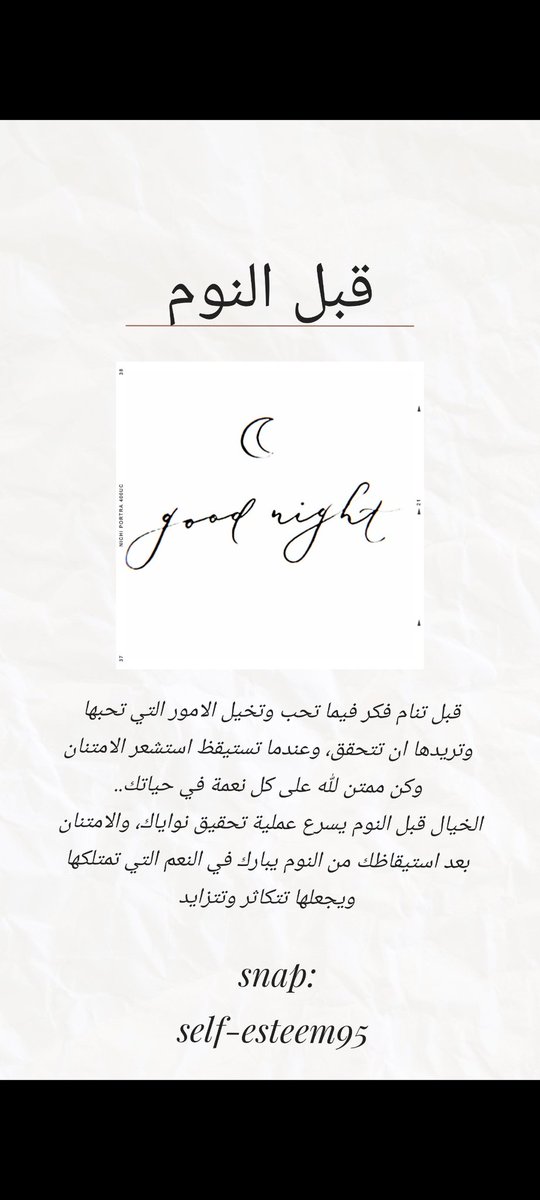 قبل النوم
38
good night
NICHI PORTRA 400UC
21
37
قبل تنام فكر فيما تحب وتخيل الامور التي تحبها
وتريدها ان تتحقق، وعندما تستيقظ استشعر الامتنان
وكن ممتن لله على كل نعمة في حياتك..
الخيال قبل النوم يسرع عملية تحقيق نواياك، والامتنان
بعد استيقاظك من النوم يبارك في النعم التي تمتلكها
ويجعلها تتكاثر وتتزايد
snap:
self-esteem95